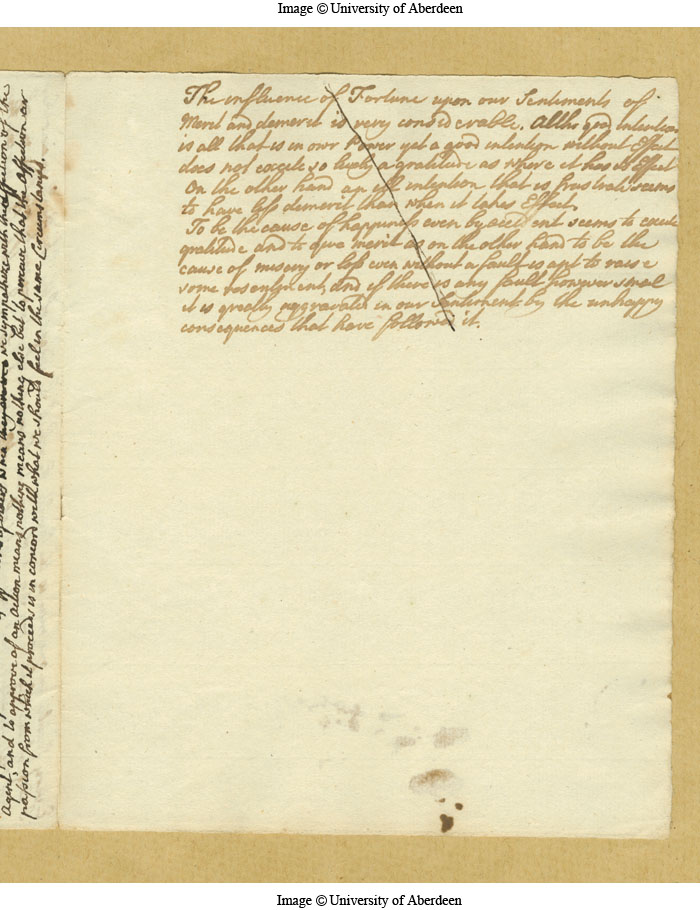 Image © University of Aberdeen
The influence of Fortune upon our Sentiments of
Merit and demerit is very considerable. Altho good intention
is all that is in our Power yet a good intention without Effect
does not excite so lively a gratitude as where it has its Effect
On the other hand an ill intention that is frustrate seems
to have less demerit than when it takes Effect.
To be the cause of happiness even by accident seems to excite
gratitude and to give merit as on the other hand to be the
cause of misery or loss even without a fault is apt to raise
some resentment, and if there is any fault however small
it is greatly aggravated in our Sentiment by the unhappy
consequences that have followed it.
we sympathize with the affection of the
Agent, and to approve of an Action means nothing means nothing else but to perceive that the Affection or
passion from which it proceeds is in concord with what we should feel in the same Circumstances.
Image © University of Aberdeen